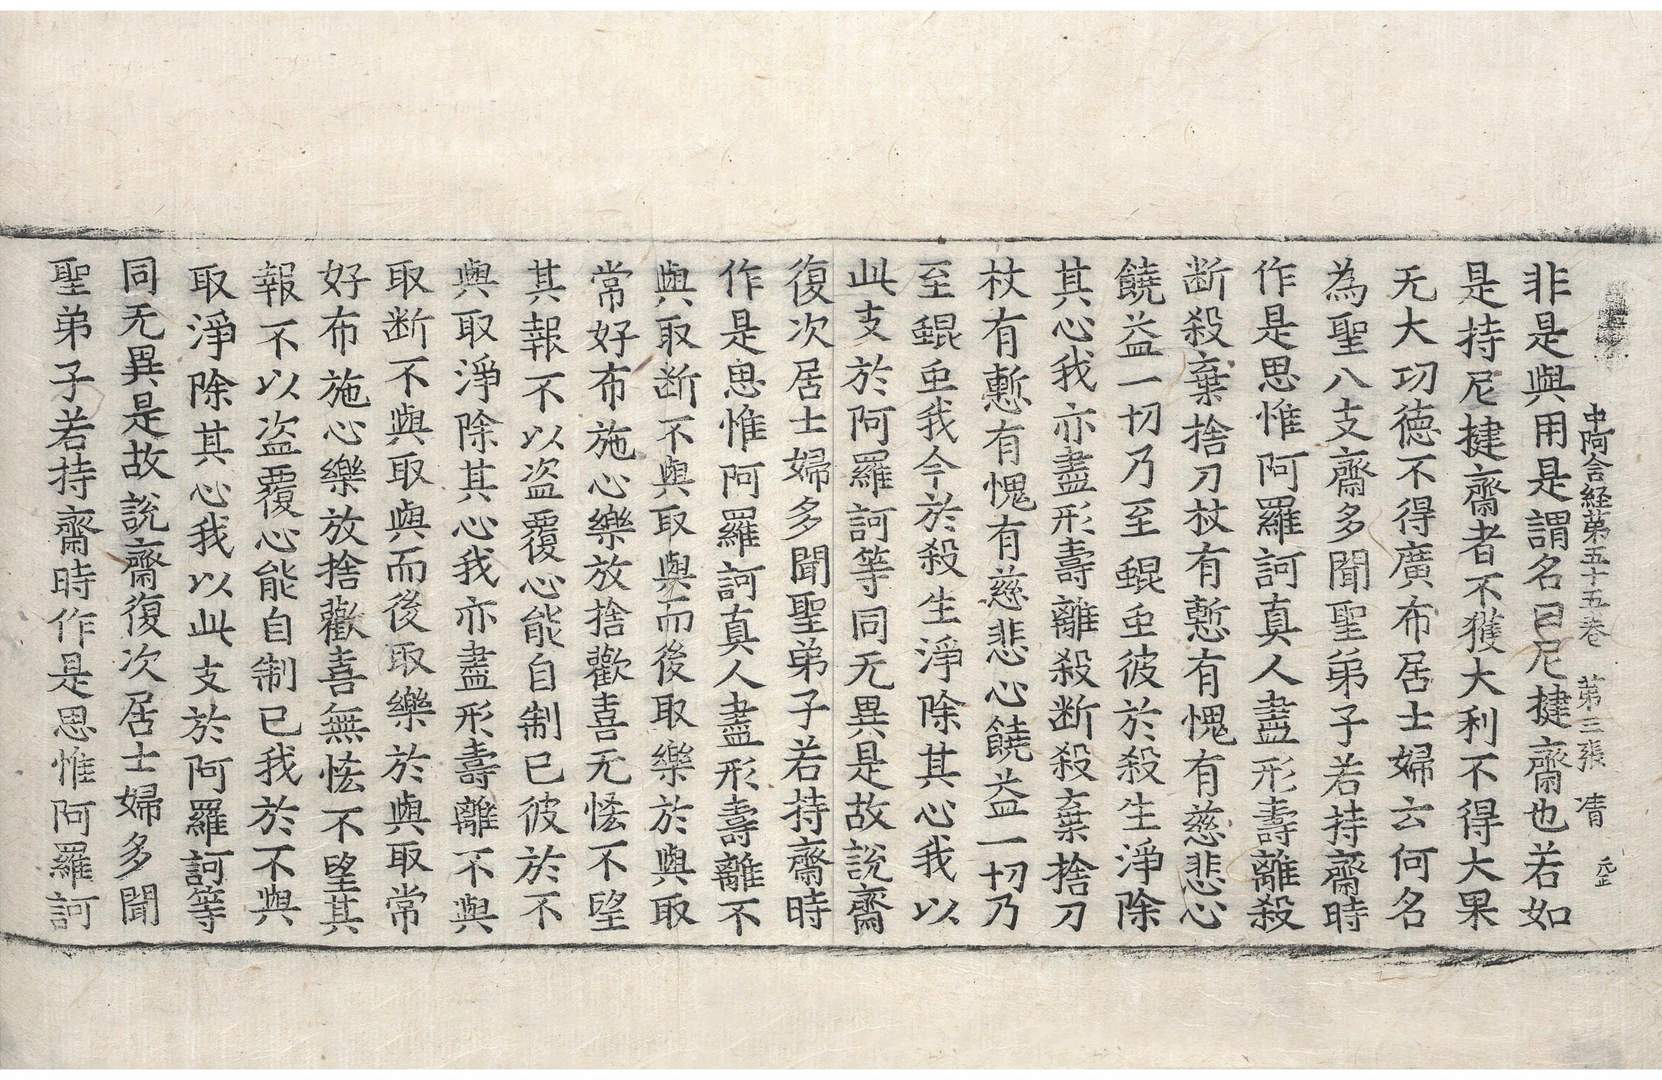 中阿含経第五十五卷　第三張　凊
非是與用是謂名曰尼揵齋也若如
是持尼揵齋者不獲大利不得大果
无大功德不得廣布居士婦云何名
為聖八支齋多聞聖弟子若持齋時
作是思惟阿羅訶真人盡形壽離殺
断殺棄捨刀杖有慙有愧有慈悲心
饒益一切乃至蜫虫彼於殺生淨除
其心我亦盡形壽離殺断殺棄捨刀
杖有慙有愧有慈悲心饒益一切乃
至蜫虫我今於殺生淨除其心我以
此支於阿羅訶等同无異是故說齋
復次居士婦多聞聖弟子若持齋時
作是思惟阿羅訶真人盡形壽離不
與取断不與取與而後取樂於與取
常好布施心樂放捨歡喜无恡不望
其報不以盗覆心能自制已彼於不
與取淨除其心我亦盡形壽離不與
取断不與取與而後取樂於與取常
好布施心樂放捨歡喜無恡不望其
報不以盗覆心能自制已我於不與
取淨除其心我以此支於阿羅訶等
同无異是故說齋復次居士婦多聞
聖弟子若持齋時作是思惟阿羅訶